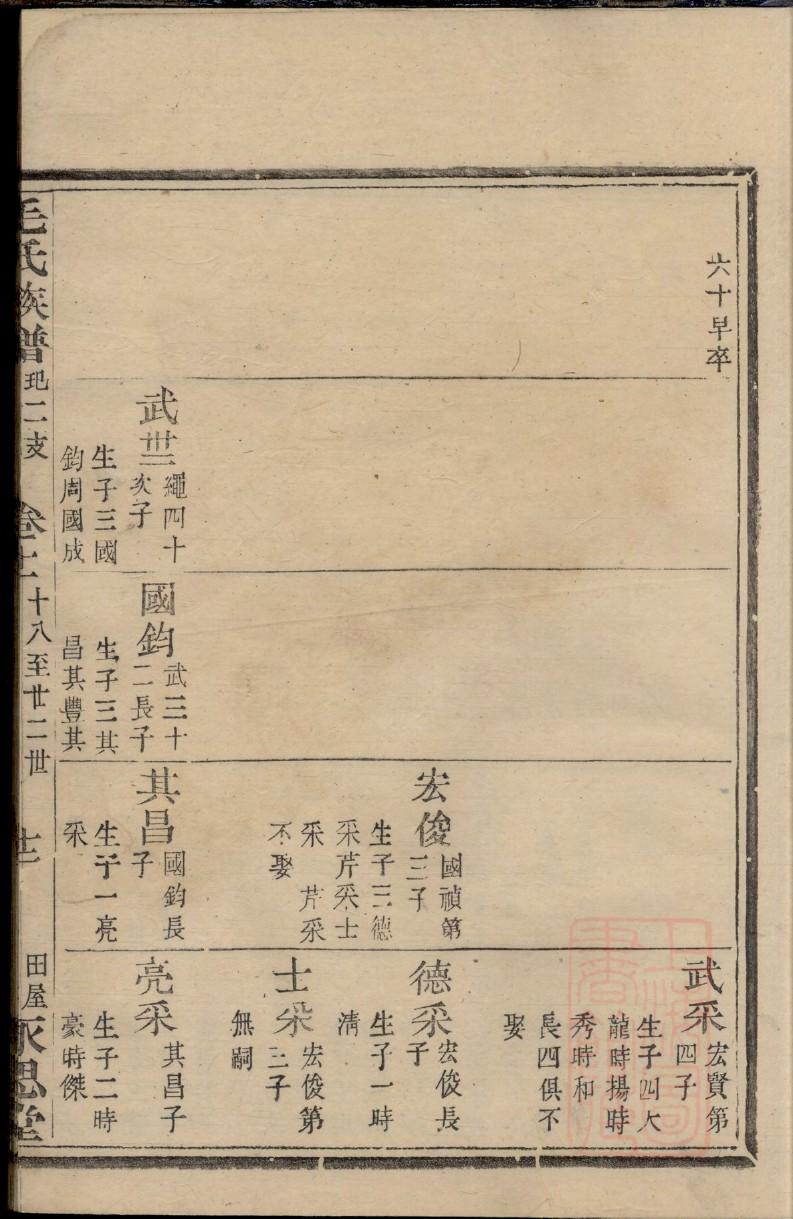 六十早卒
武卋
繩四十
次子
生子三國
鈞周國成
國鈞
武三十
二長子
生子三其
昌其豐其
宏俊
國禎第
三子
生子三德
采芹采士
采　芹采
不娶
其昌
國鈞長
子
生子一亮
采
武采
宏賢第
四子
生子四大
龍時揚時
秀時和
長四俱不
娶
德采
宏俊長
子
生子一時
清
士采
宏俊第
三子
無嗣
亮采
其昌子
生子二時
豪時傑
毛氏族譜 玘二支 卷十二 十八至廿二世 田屋 永思堂